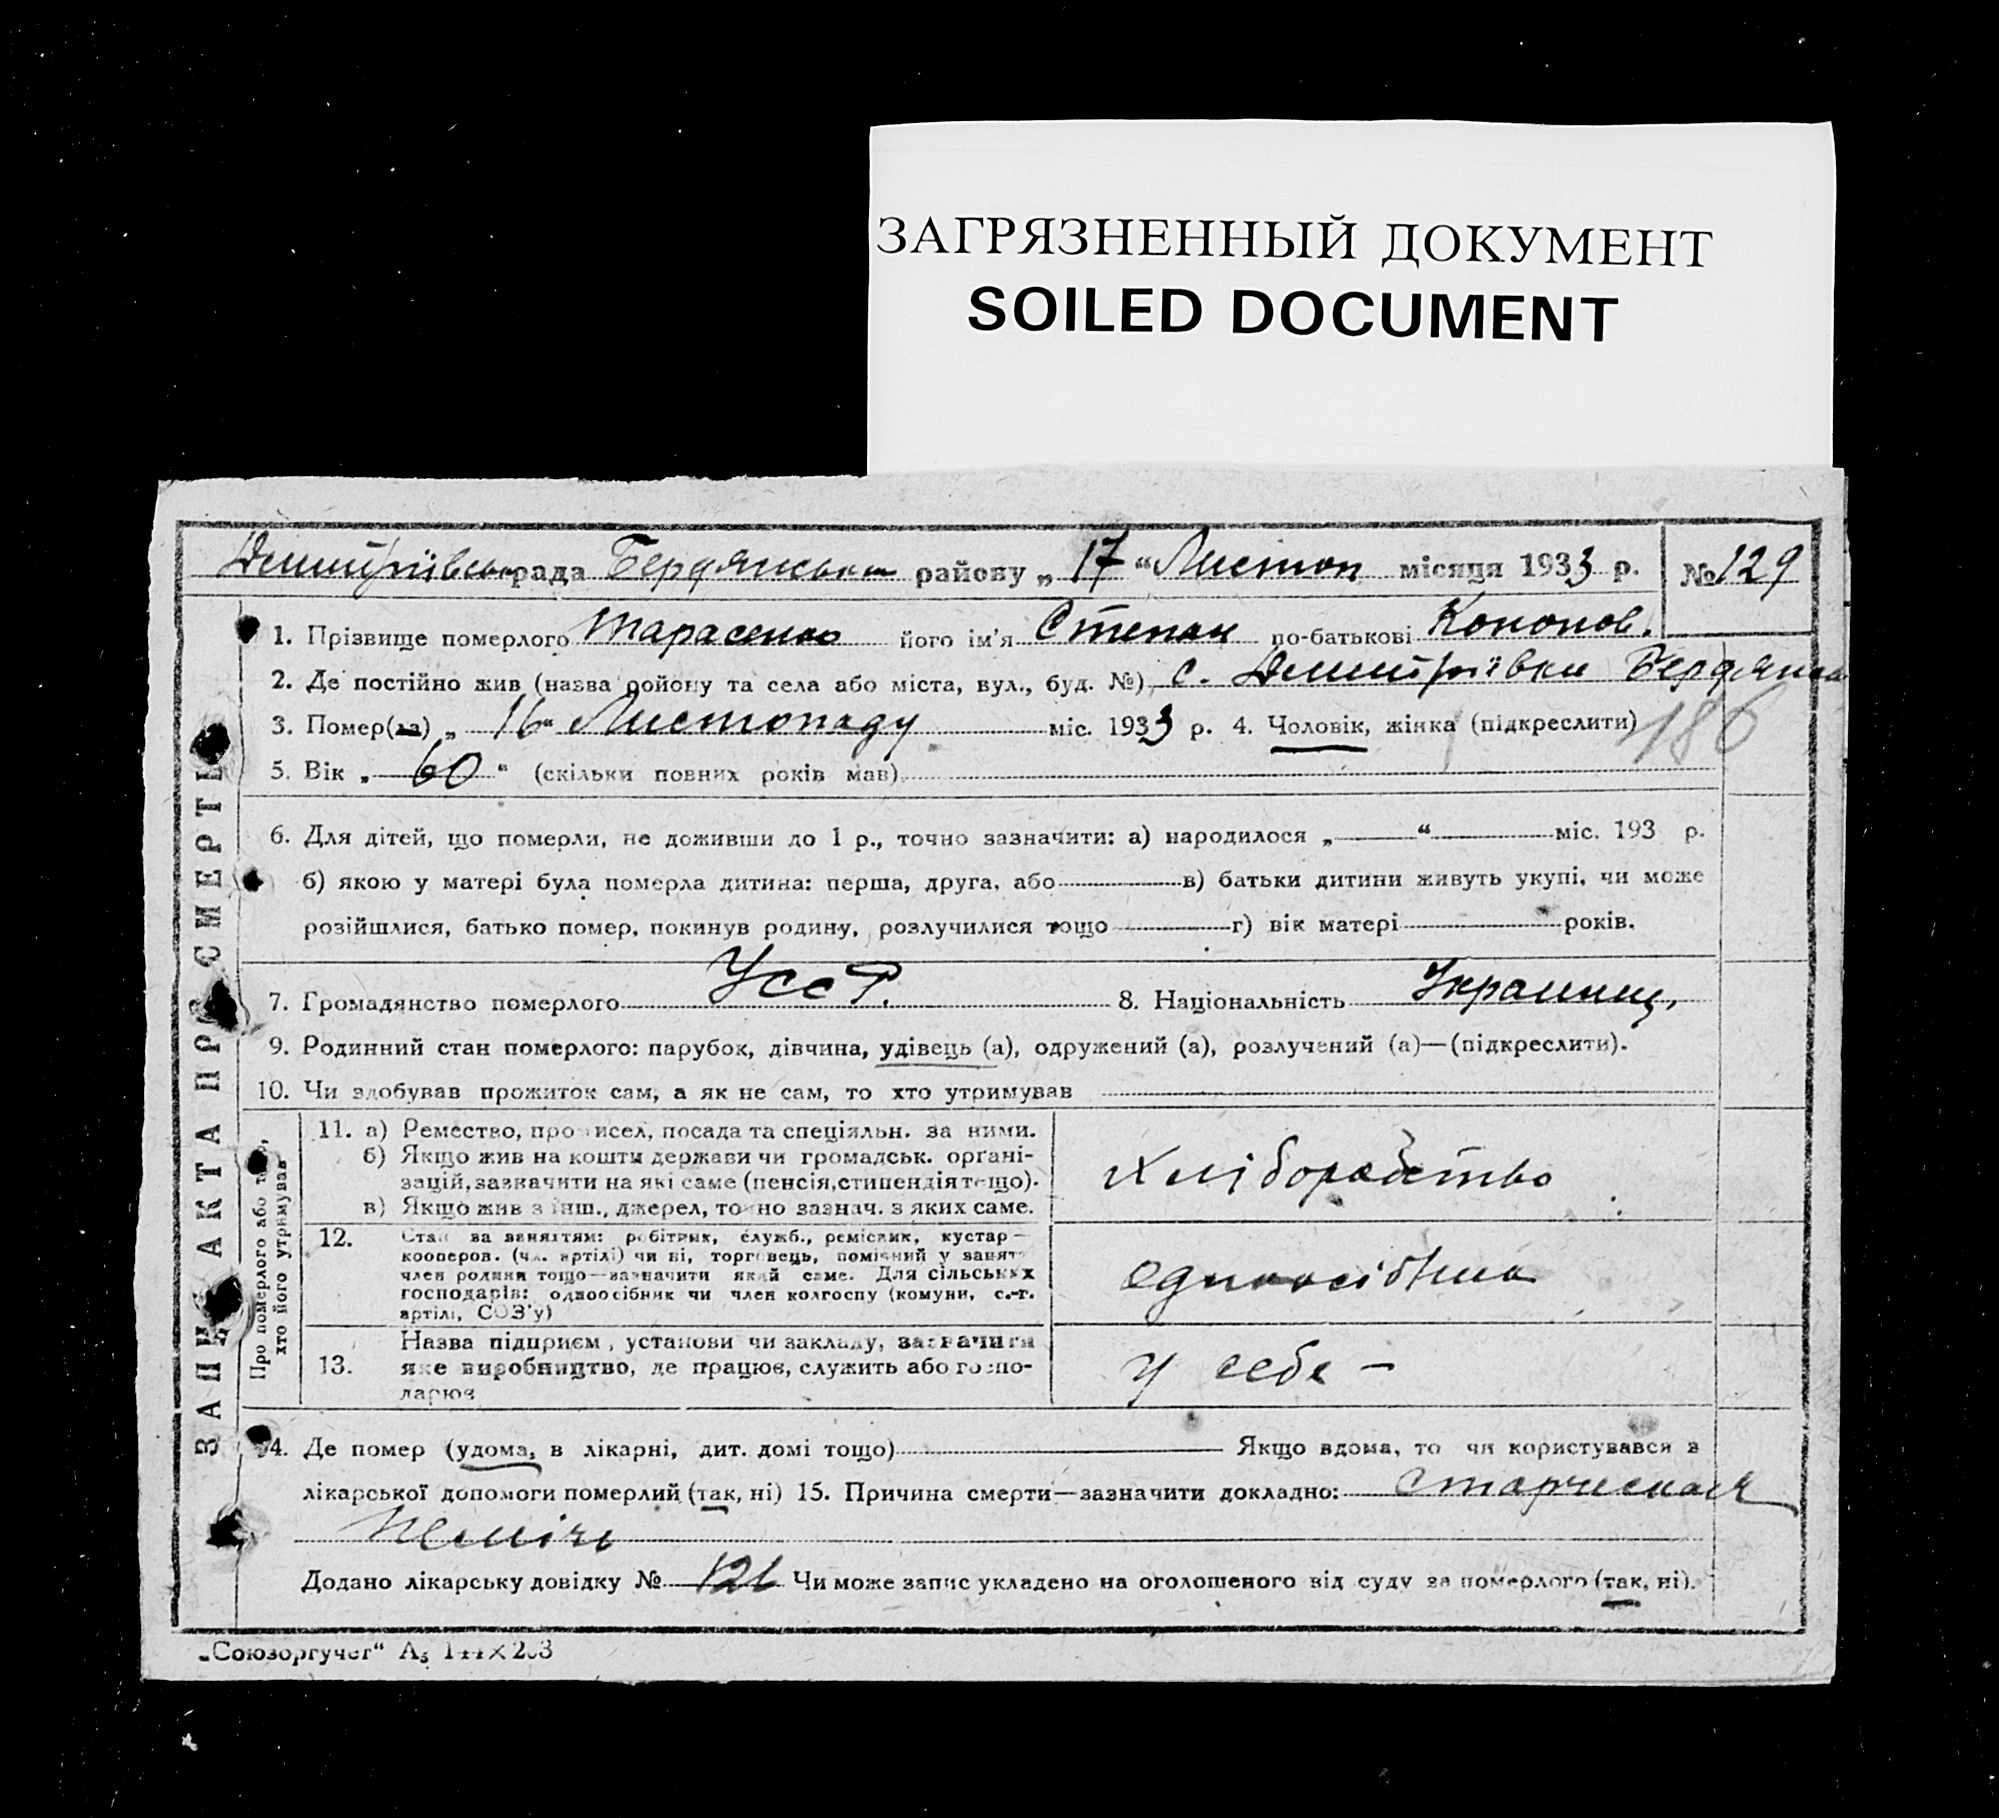 ЗАГРЯЗНЕННЫЙ ДОКУМЕНТ
SOILED DOCUMENT
рада Бердянськ району „17“ Листоп місяця 1933 р. № 129
ЗАПИС АКТА ПРО СМЕРТЬ
1. Прізвище померлого Тарасенко його ім'я Степан по-батькові Кононов.
2. Де постійно жив (назва району та села або міста, вул., буд. №) с. Дмитрівки Бердянсь
3. Помер(ла) „16“ Листопаду міс. 1933 р. 4. Чоловік, жінка (підкреслити) 186
5. Вік „60“ (скільки повних років мав)
6. Для дітей, що померли, не доживши до 1 р., точно зазначити: а) народилося „ “ міс. 193 р.
б) якою у матері була померла дитина: перша, друга, або в) батьки дитини живуть укупі, чи може
розійшлися, батько помер, покинув родину, розлучилися тощо г) вік матері років.
7. Громадянство померлого УССР. 8. Національність Украинц.
9. Родинний стан померлого: парубок, дівчина, удівець (а), одружений (а), розлучений (а)—(підкреслити).
10. Чи здобував прожиток сам, а як не сам, то хто утримував
Про померлого або того,
хто його утримував
11. а) Ремество, промисел, посада та спеціяльн. за ними.
б) Якщо жив на кошти держави чи громадськ. органі-
зацій, зазначити на які саме (пенсія, стипендія тощо).
в) Якщо жив з інш., джерел, точно зазнач. з яких саме.
Хліборобство
12. Стан за заняттям: робітник, служб., ремісник, кустар—
кооперов. (чл. артілі) чи ні, торговець, помічний у занят
член родини тощо—зазначити який саме. Для сільських
господарів: одноосібник чи член колгоспу (комуни, с.-г.
артілі, СОЗ'у)
13. Назва підприєм., установи чи закладу, зазначити
яке виробництво, де працює, служить або госпо-
дарює
у себе —
14. Де помер (удома, в лікарні, дит. домі тощо) Якщо вдома, то чи користувався з
лікарської допомоги померлий (так, ні) 15. Причина смерти—зазначити докладно:
Неміч
Додано лікарську довідку № 121 Чи може запис укладено на оголошеного від суду за померлого (так, ні).
„Союзоргучет“ А₅